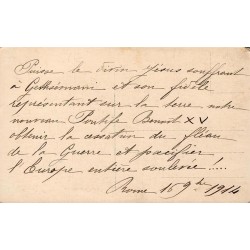 Puisse le divin Jésus souffrant
à Gethsémani et son fidèle
représentant sur la terre notre
nouveau Pontife Benoit XV
obtenir la cessation du fléau
de la Guerre et pacifier
l'Europe entière soulevée !....
Rome 15 9bre 1914